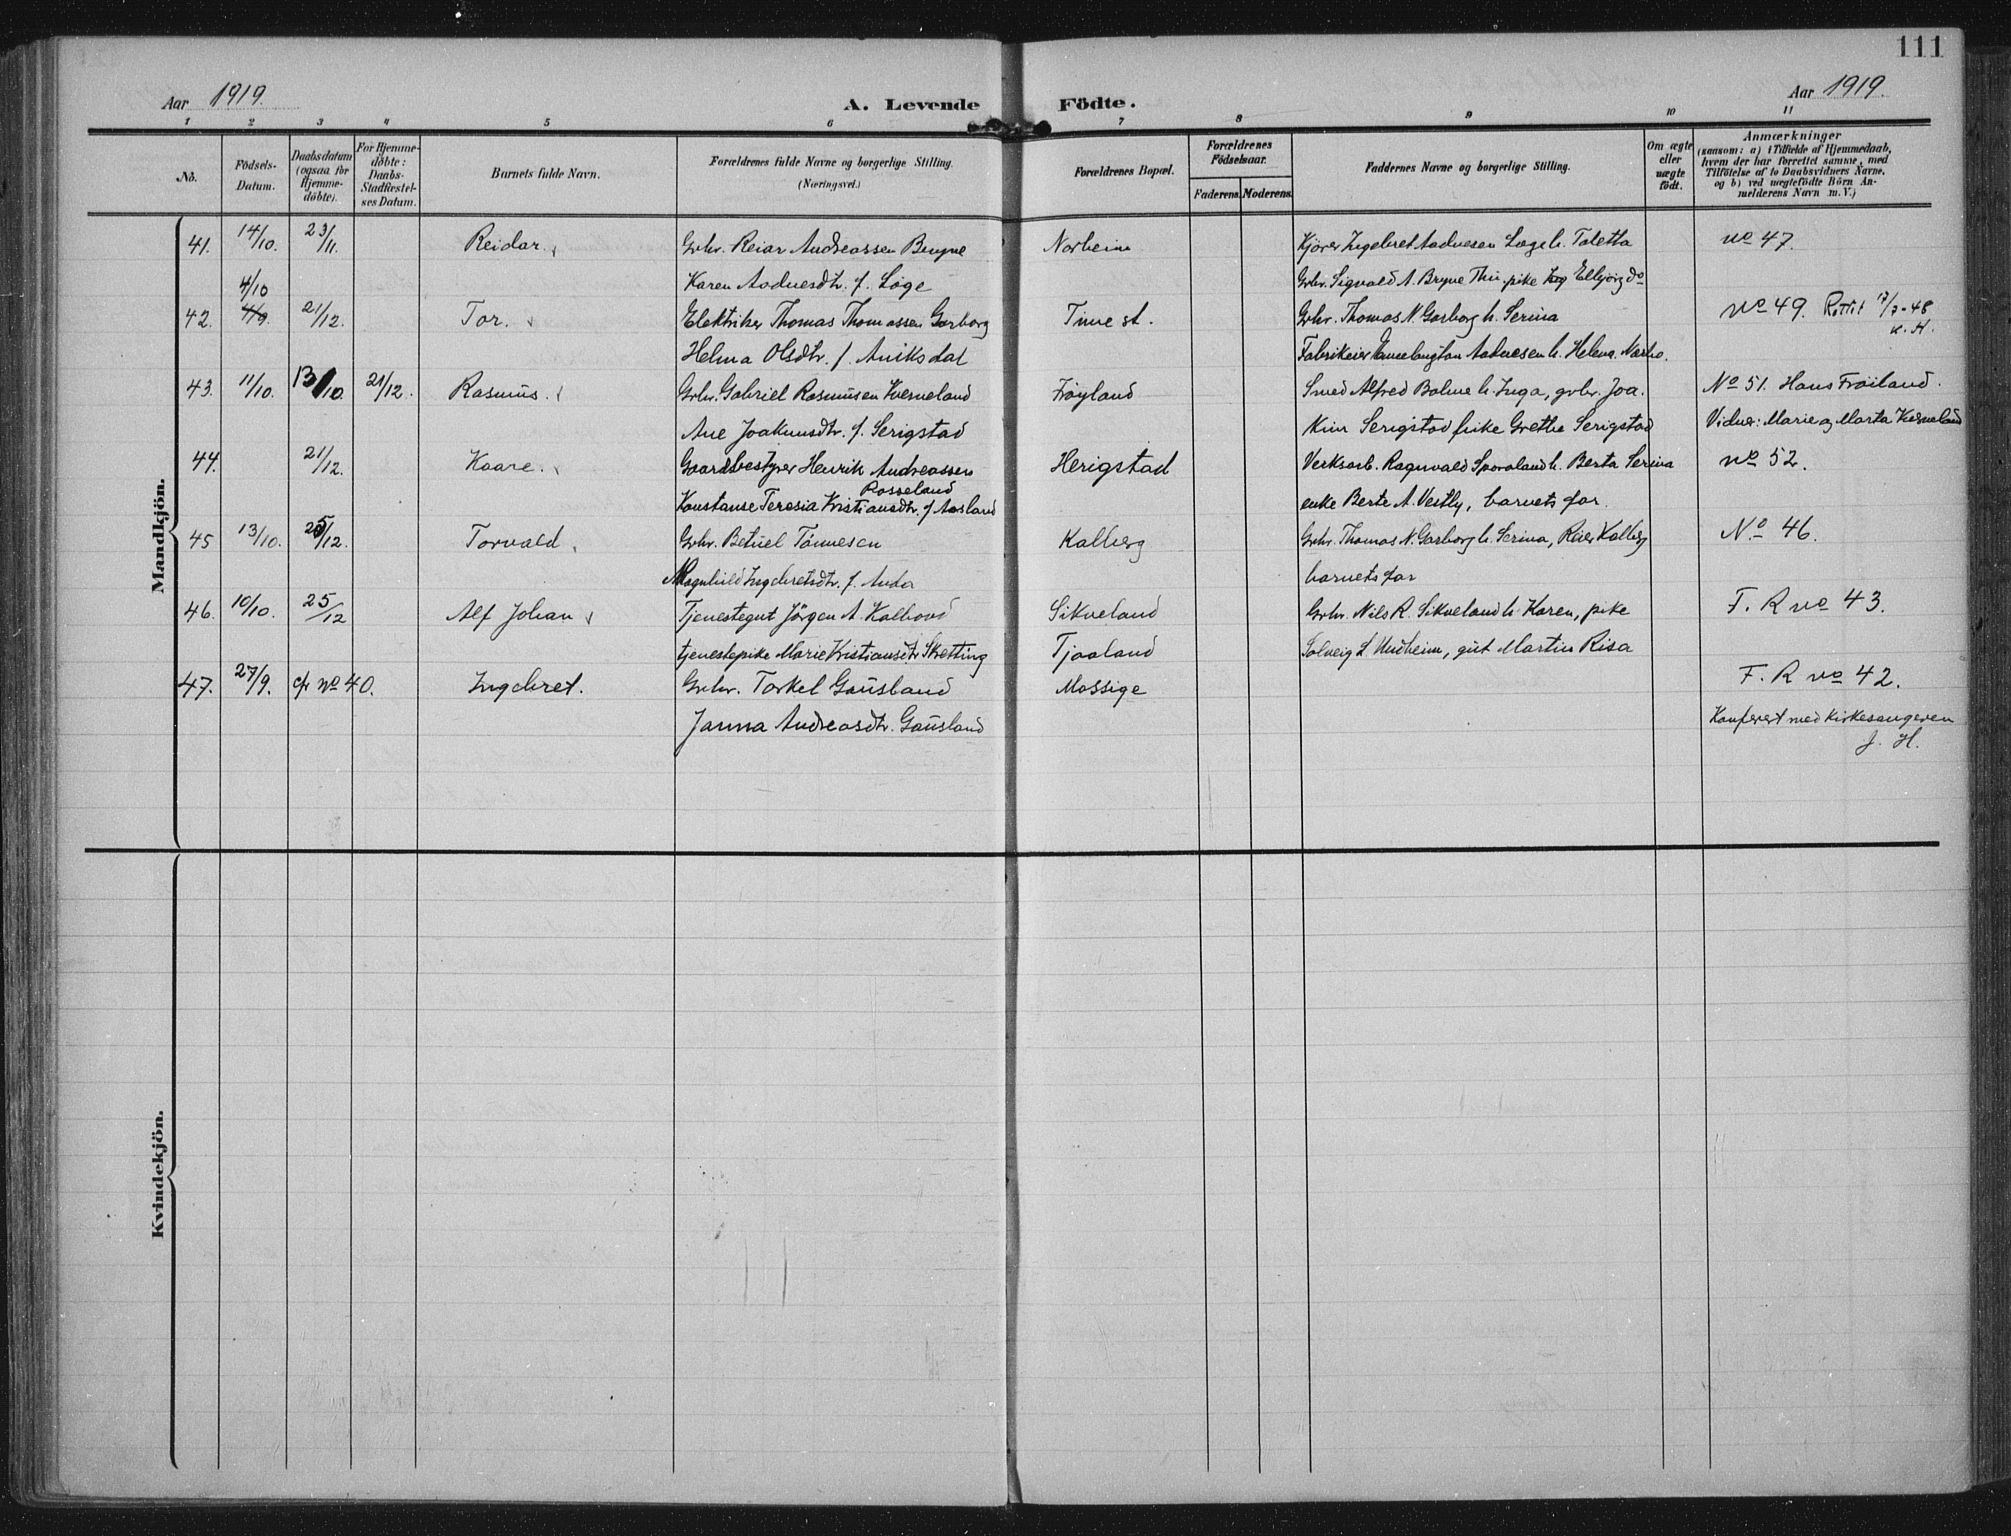 111
Aar 1919.
A. Levende Födte.
Aar 1919.
1 2 3 4 5 6 7 8 9 10 11
No.
Födsels-Datum.
Daabsdatum (ogsaa for Hjemme-döbte).
For Hjemme-döbte: Daabs-Stadfæstel-ses Datum.
Barnets fulde Navn.
Forældrenes fulde Navne og borgerlige Stilling.
(Næringsvei.)
Forældrenes Bopæl.
Forældrenes Födselsaar.
Faderens. Moderens.
Faddernes Navne og borgerlige Stilling.
Om ægte eller uægte födt.
Anmærkninger
(saasom: a) i Tilfælde af Hjemmedaab,
hvem der har forrettet samme, med
Tilföielse af to Daabsvidners Navne,
og b) ved uægtefödte Börn An-
melderens Navn m. V.)
Mandkjön.
41. 14/10. 23/11. Reidar. Grbr. Reiar Andreassen Bryne Norheim Kjører Ingebret Aadnesen Løge h. Taletta No 47.
Karen Aadnesdtr. f. Løge Grbr. Sigvald A. Bryne Thu pike Elbjørg do
4/10
42. 4/9. 21/12. Tor. Elektriker Thomas Thomassen Garborg Time st. Grbr. Thomas N. Garborg h. Serina No 49. Rettet 17/7-48 K.H.
Helma Olsdtr. f. Aniksdal Fabrikeier Aadnesen h. Helena Nærbø.
43. 11/10. 13/10. 21/12. Rasmus. Grbr. Gabriel Rasmusen Kverneland Frøyland Smed Alfred Bolme h. Inga, grbr. Joa. No 51. Hans Frøiland.
Ane Joakimsdtr. f. Serigstad Kim Serigstad pike Grethe Serigstad Vidner: Marie og Marta Kverneland
44. 21/12. Kaare. Gaardsbestyrer Henrik Andreassen Herigstad Verksarb. Ragnvald Sporaland h. Berta Serina No 52.
Rosseland
Konstanse Teresia Kristiansdtr. f. Aasland enke Berte A. Vestly, barnets far.
45 13/10. 25/12. Torvald Grbr. Betuel Tönnesen Kalberg Grbr. Thomas N. Garborg h. Serina, Reier Kalberg No 46.
Magnhild Ingebretsdtr. f. Anda barnets far
46. 10/10. 25/12 Alf Johan Tjenestegut Jörgen A. Kalhovd Sikveland Grbr. Nils R. Sikveland h. Karen, pike F. R No 43.
tjenestepike Marie Kristiansdtr Skretting Tjaaland Solveig L Undheim, gut Martin Risa
47. 27/9. cfr No 40. Ingebret. Grbr. Torkel Gausland Mossige F. R No 42.
Janna Andreasdtr. Gausland Konferert med kirkesangeren
J. H.
Kvindekjön.